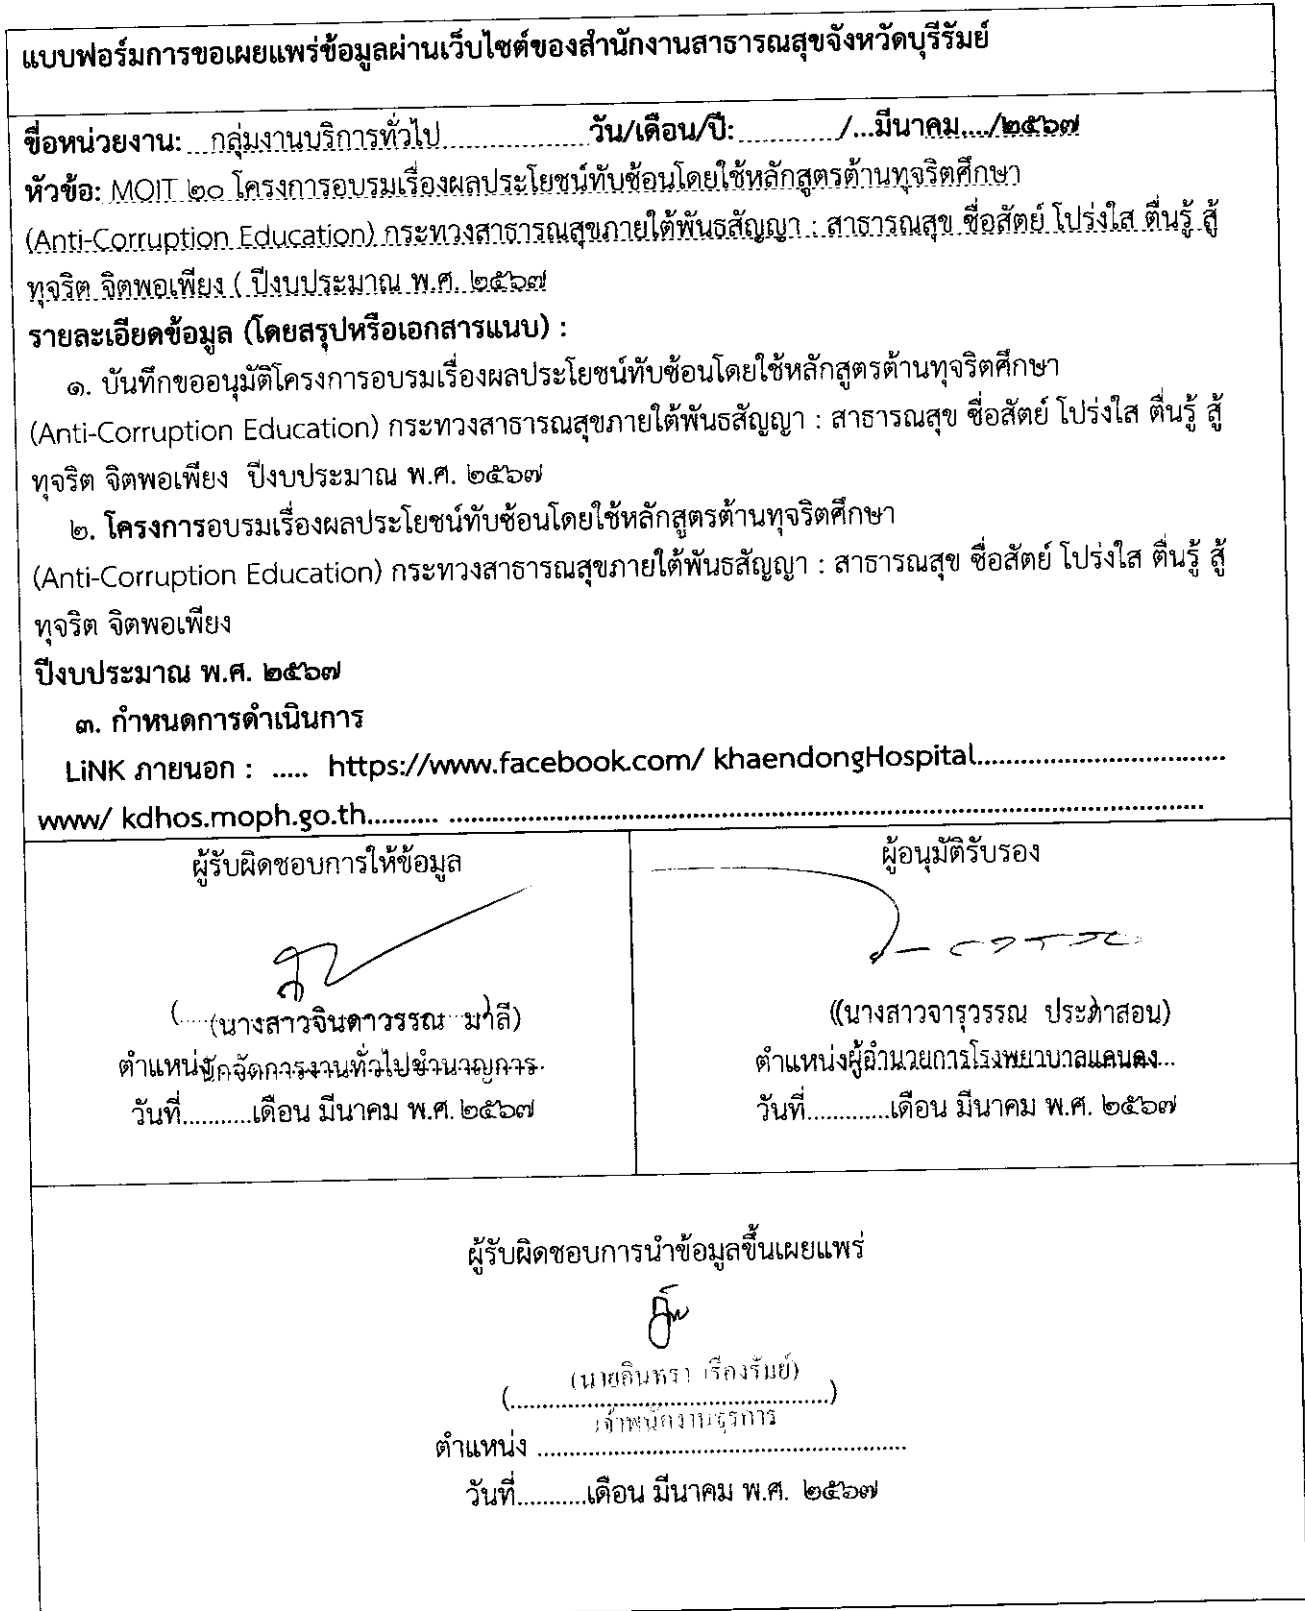 แบบฟอร์มการขอเผยแพร่ข้อมูลผ่านเว็บไซต์ของสำนักงานสาธารณสุขจังหวัดบุรีรัมย์
ชื่อหน่วยงาน: กลุ่มงานบริการทั่วไป วัน/เดือน/ปี: ............/...มีนาคม..../๒๕๖๗
หัวข้อ: MOIT ๒๐ โครงการอบรมเรื่องผลประโยชน์ทับซ้อนโดยใช้หลักสูตรต้านทุจริตศึกษา
(Anti-Corruption Education) กระทวงสาธารณสุขภายใต้พันธสัญญา : สาธารณสุข ซื่อสัตย์ โปร่งใส ตื่นรู้ สู้
ทุจริต จิตพอเพียง ( ปีงบประมาณ พ.ศ. ๒๕๖๗
รายละเอียดข้อมูล (โดยสรุปหรือเอกสารแนบ) :
๑. บันทึกขออนุมัติโครงการอบรมเรื่องผลประโยชน์ทับซ้อนโดยใช้หลักสูตรต้านทุจริตศึกษา
(Anti-Corruption Education) กระทวงสาธารณสุขภายใต้พันธสัญญา : สาธารณสุข ซื่อสัตย์ โปร่งใส ตื่นรู้ สู้
ทุจริต จิตพอเพียง ปีงบประมาณ พ.ศ. ๒๕๖๗
๒. โครงการอบรมเรื่องผลประโยชน์ทับซ้อนโดยใช้หลักสูตรต้านทุจริตศึกษา
(Anti-Corruption Education) กระทวงสาธารณสุขภายใต้พันธสัญญา : สาธารณสุข ซื่อสัตย์ โปร่งใส ตื่นรู้ สู้
ทุจริต จิตพอเพียง
ปีงบประมาณ พ.ศ. ๒๕๖๗
๓. กำหนดการดำเนินการ
LiNK ภายนอก : ..... https://www.facebook.com/ khaendongHospital.................................
www/ kdhos.moph.go.th.......... ....................................................................................................
ผู้รับผิดชอบการให้ข้อมูล
(นางสาวจินดาวรรณ มาลี)
ตำแหน่งนักจัดการงานทั่วไปชำนาญการ
วันที่...........เดือน มีนาคม พ.ศ. ๒๕๖๗
ผู้อนุมัติรับรอง
((นางสาวจารุวรรณ ประดาสอน)
ตำแหน่งผู้อำนวยการโรงพยาบาลแคนดง...
วันที่.............เดือน มีนาคม พ.ศ. ๒๕๖๗
ผู้รับผิดชอบการนำข้อมูลขึ้นเผยแพร่
(นายอินทรา เรืองรัมย์)
ตำแหน่ง เจ้าพนักงานธุรการ
วันที่...........เดือน มีนาคม พ.ศ. ๒๕๖๗